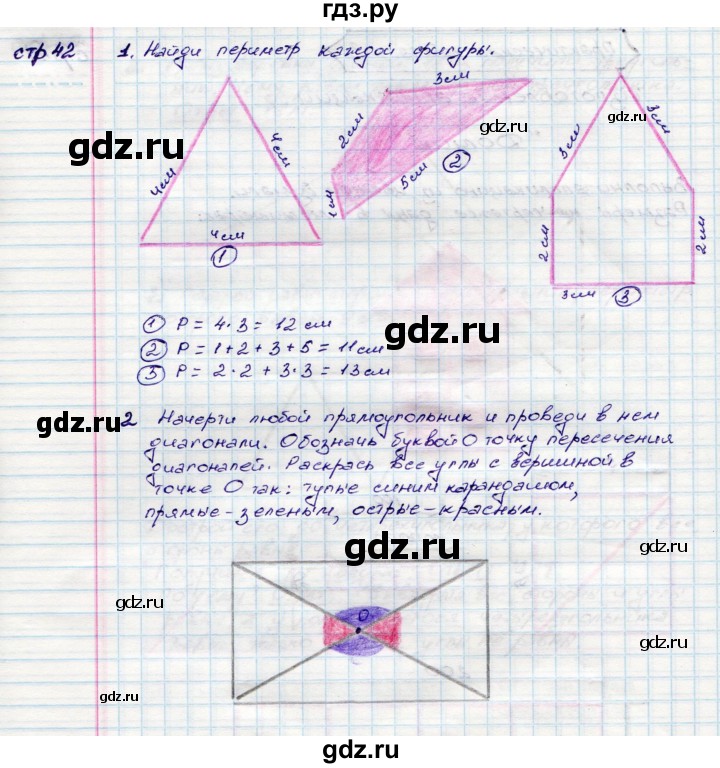 гдз.ру
стр 42
1. Найди периметр каждой фигуры.
3см
gdz.ru
gdz.ru
gdz.ru
4см
4см
2см
gdz.ru
3см
3см
2
5см
1см
4см
1
2см
2см
3см
3
gdz.ru
gdz.ru
1 P = 4·3 = 12 см
gdz.ru
2 P = 1+2+3+5 = 11см
3 P = 2·2 + 3·3 = 13см
gdz.ru
2 Начерти любой прямоугольник и проведи в нем
диагонали. Обозначь буквой О точку пересечения
диагоналей. Раскрась все углы с вершиной в
точке О так: тупые синим карандашом,
прямые-зеленым, острые-красным.
gdz.ru
gdz.ru
gdz.ru
О
gdz.ru
gdz.ru
gdz.ru